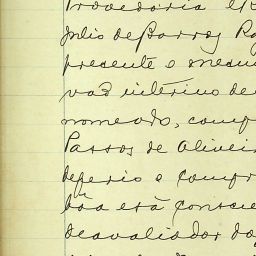 Provedoria
Julio de Barros
presente o mesmo
vaõ interino de
nomeado, comp
Passos de Oliveir
deferio o compr
bôa e sã conscie
de avaliador do